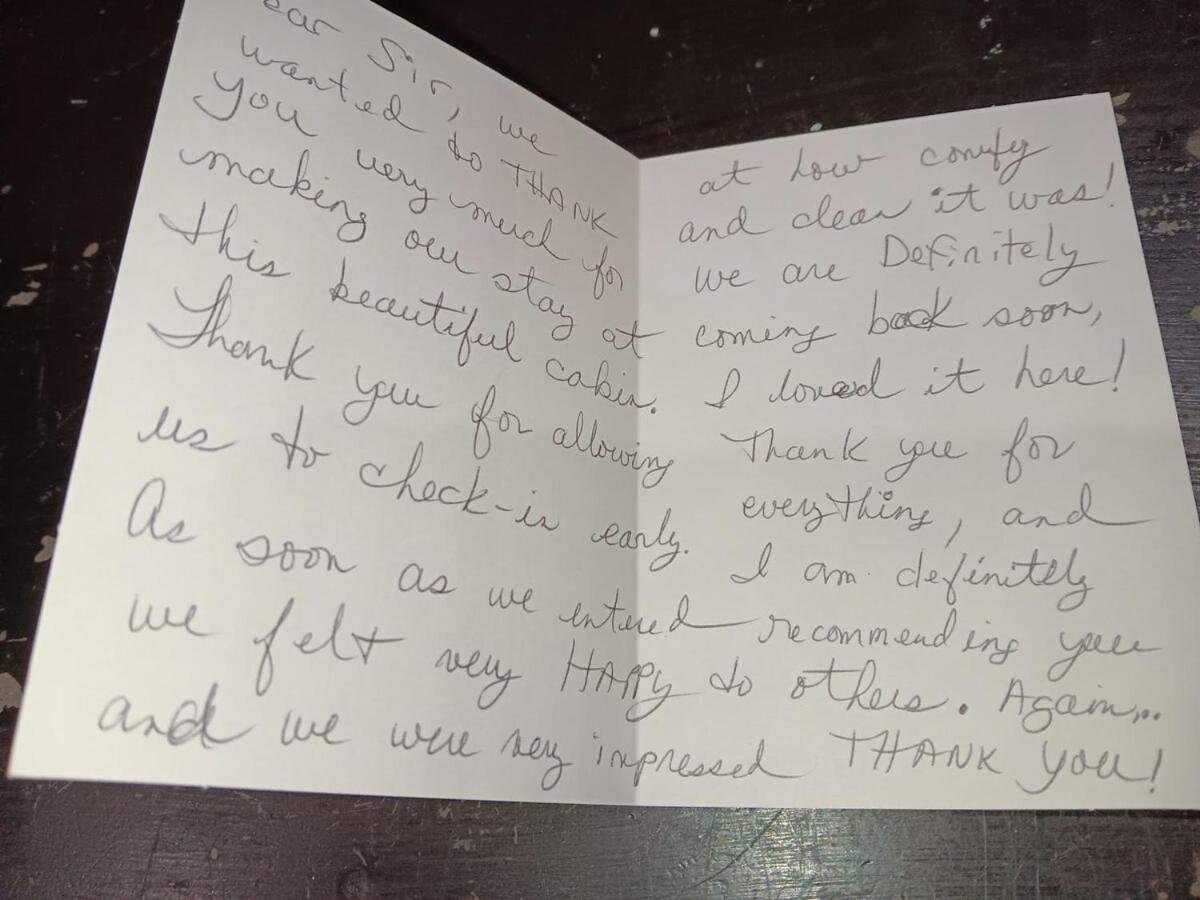 ear Sir, we
wanted to THANK
you very much for
making our stay at
this beautiful cabin.
Thank you for allowing
us to check-in early.
As soon as we entered
we felt very HAPPY
and we were very impressed
at how comfy
and clean it was!
we are Definitely
coming back soon,
I loved it here!
Thank you for
everything, and
I am definitely
recommending you
to others. Again...
THANK YOU!